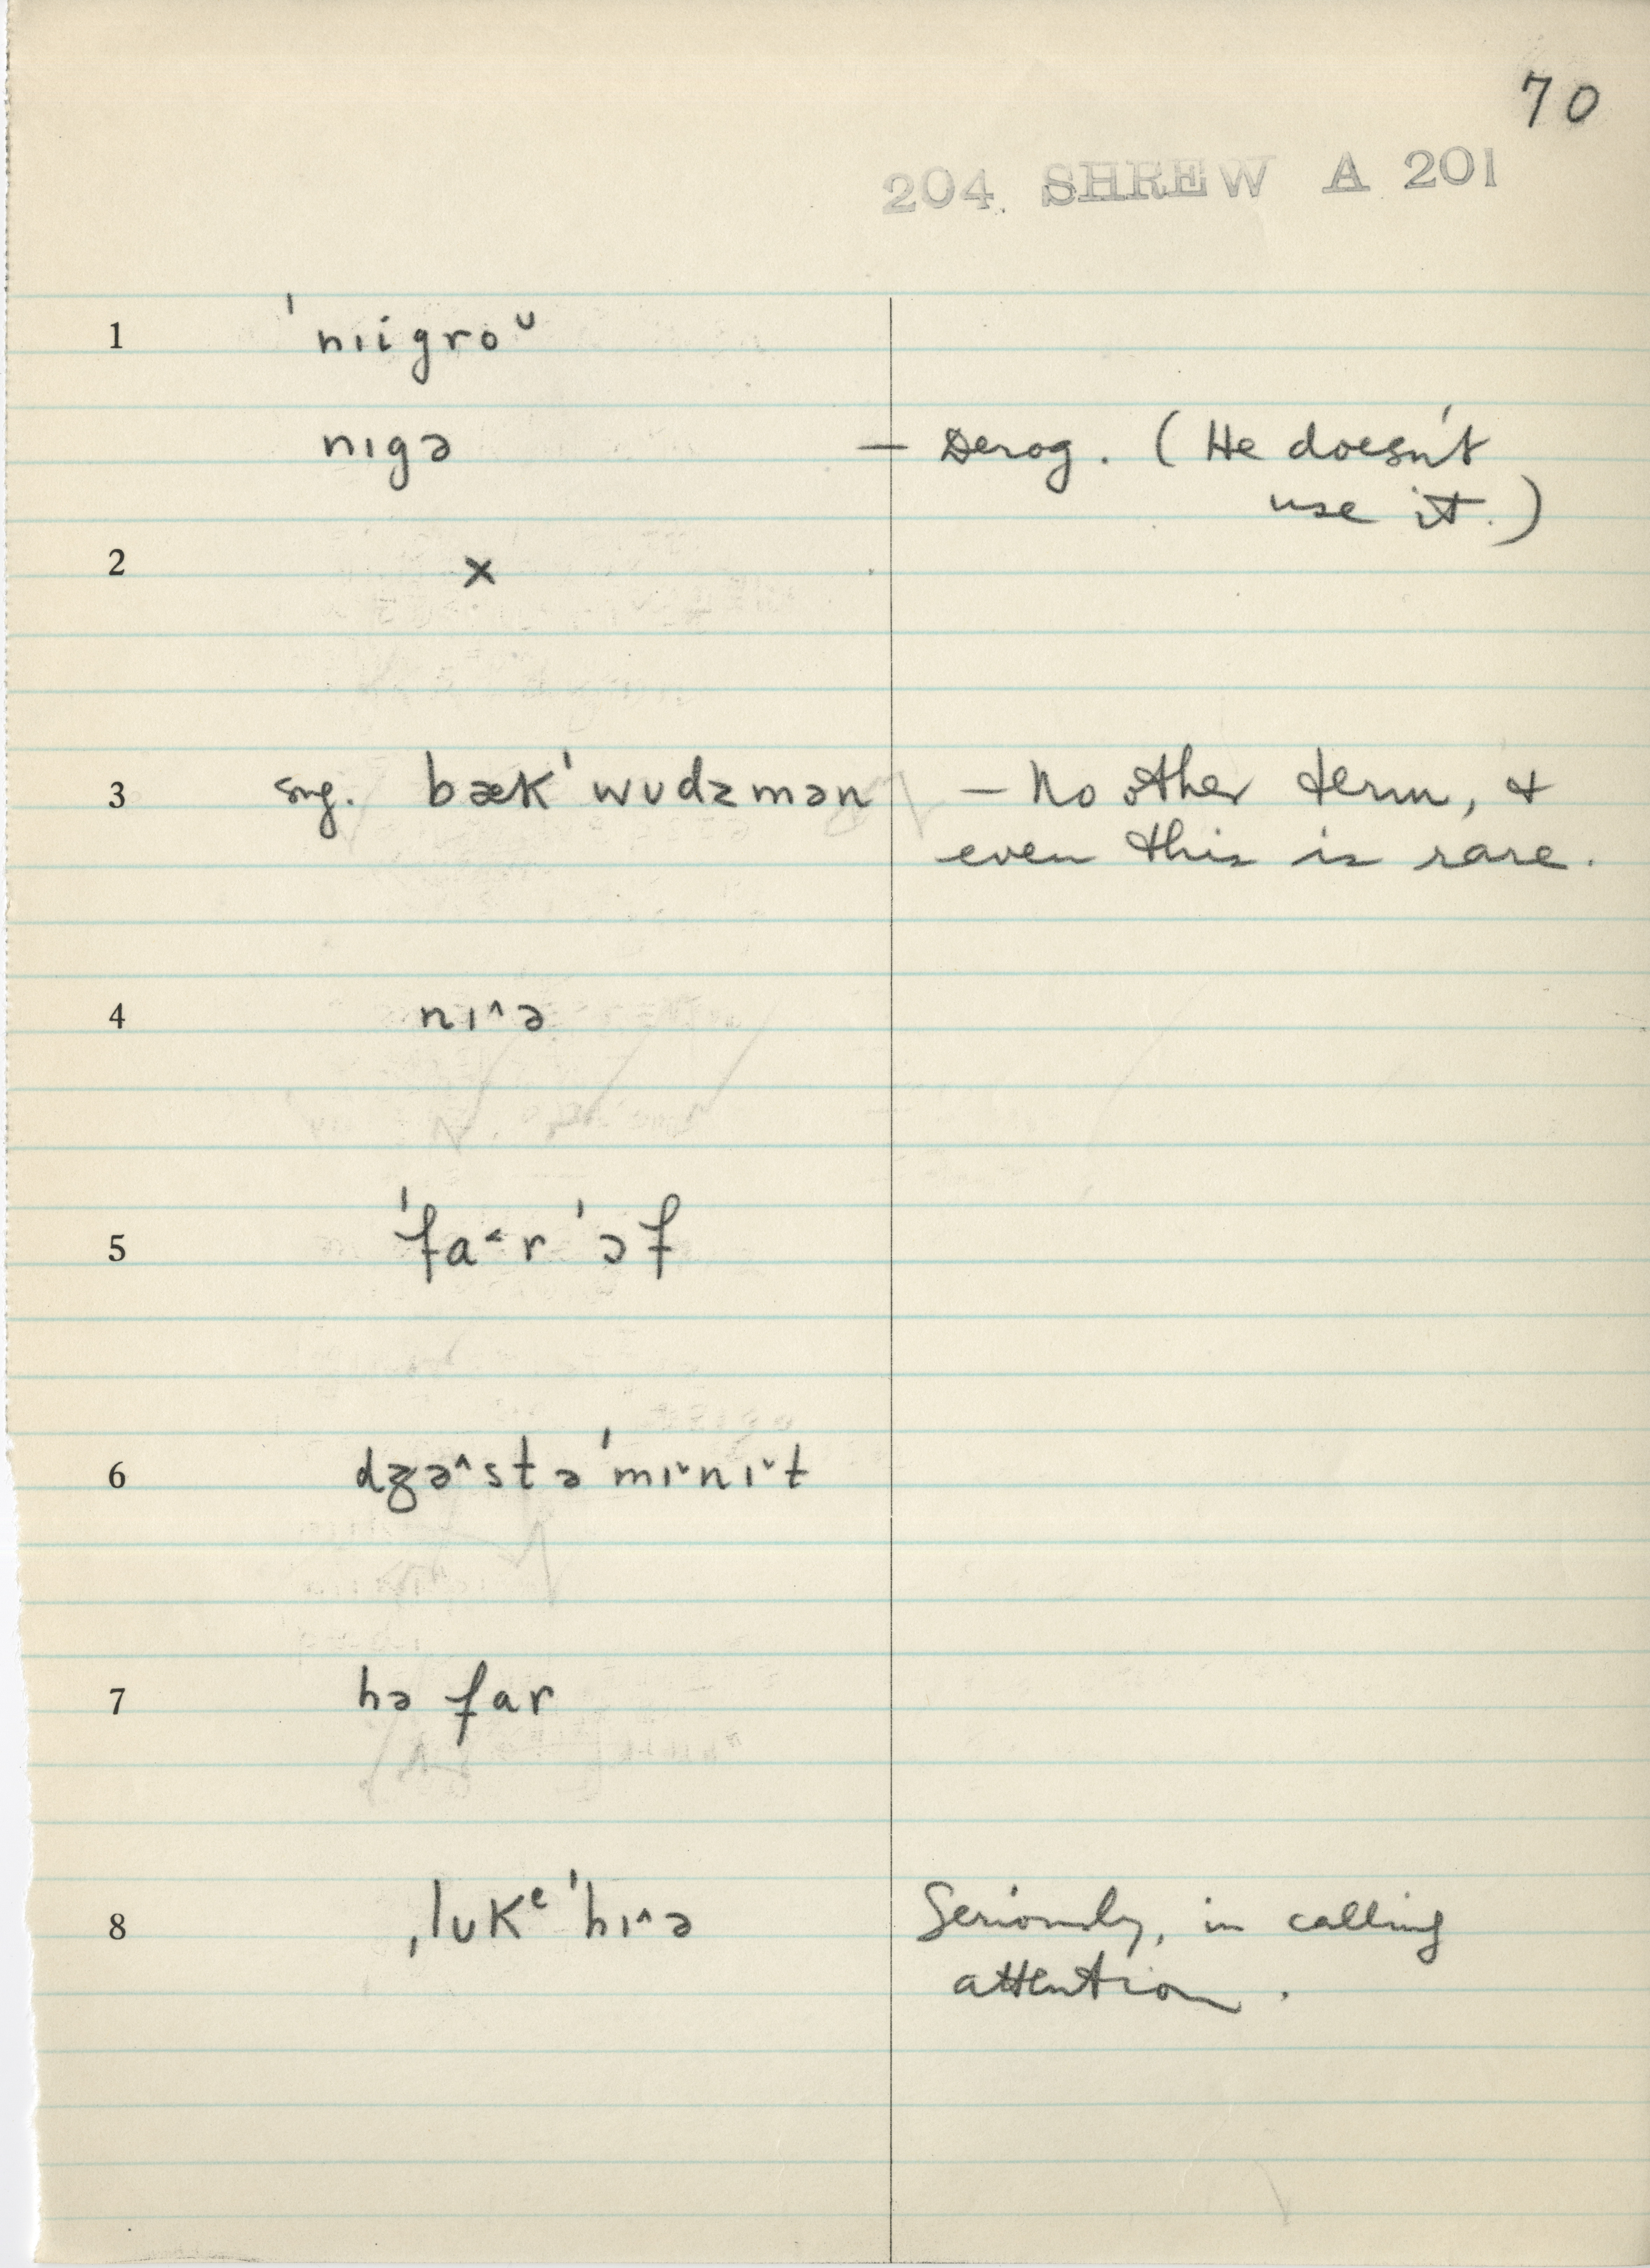 70
204 SHREW A 201
1 ˈnɪigroᴜ
nɪgə — Derog. (He doesn't
use it.)
2 ×
3 sng. bækˈwʊdzmən — No other term, &
even this is rare.
4 nɪ^ə
5 ˈfa˂rˈɔf
6 dʒə^stəˈmɪˇnɪˇt
7 hə far
8 ˌlʊkᵉˈhɪ^ə Seriously, in calling
attention.